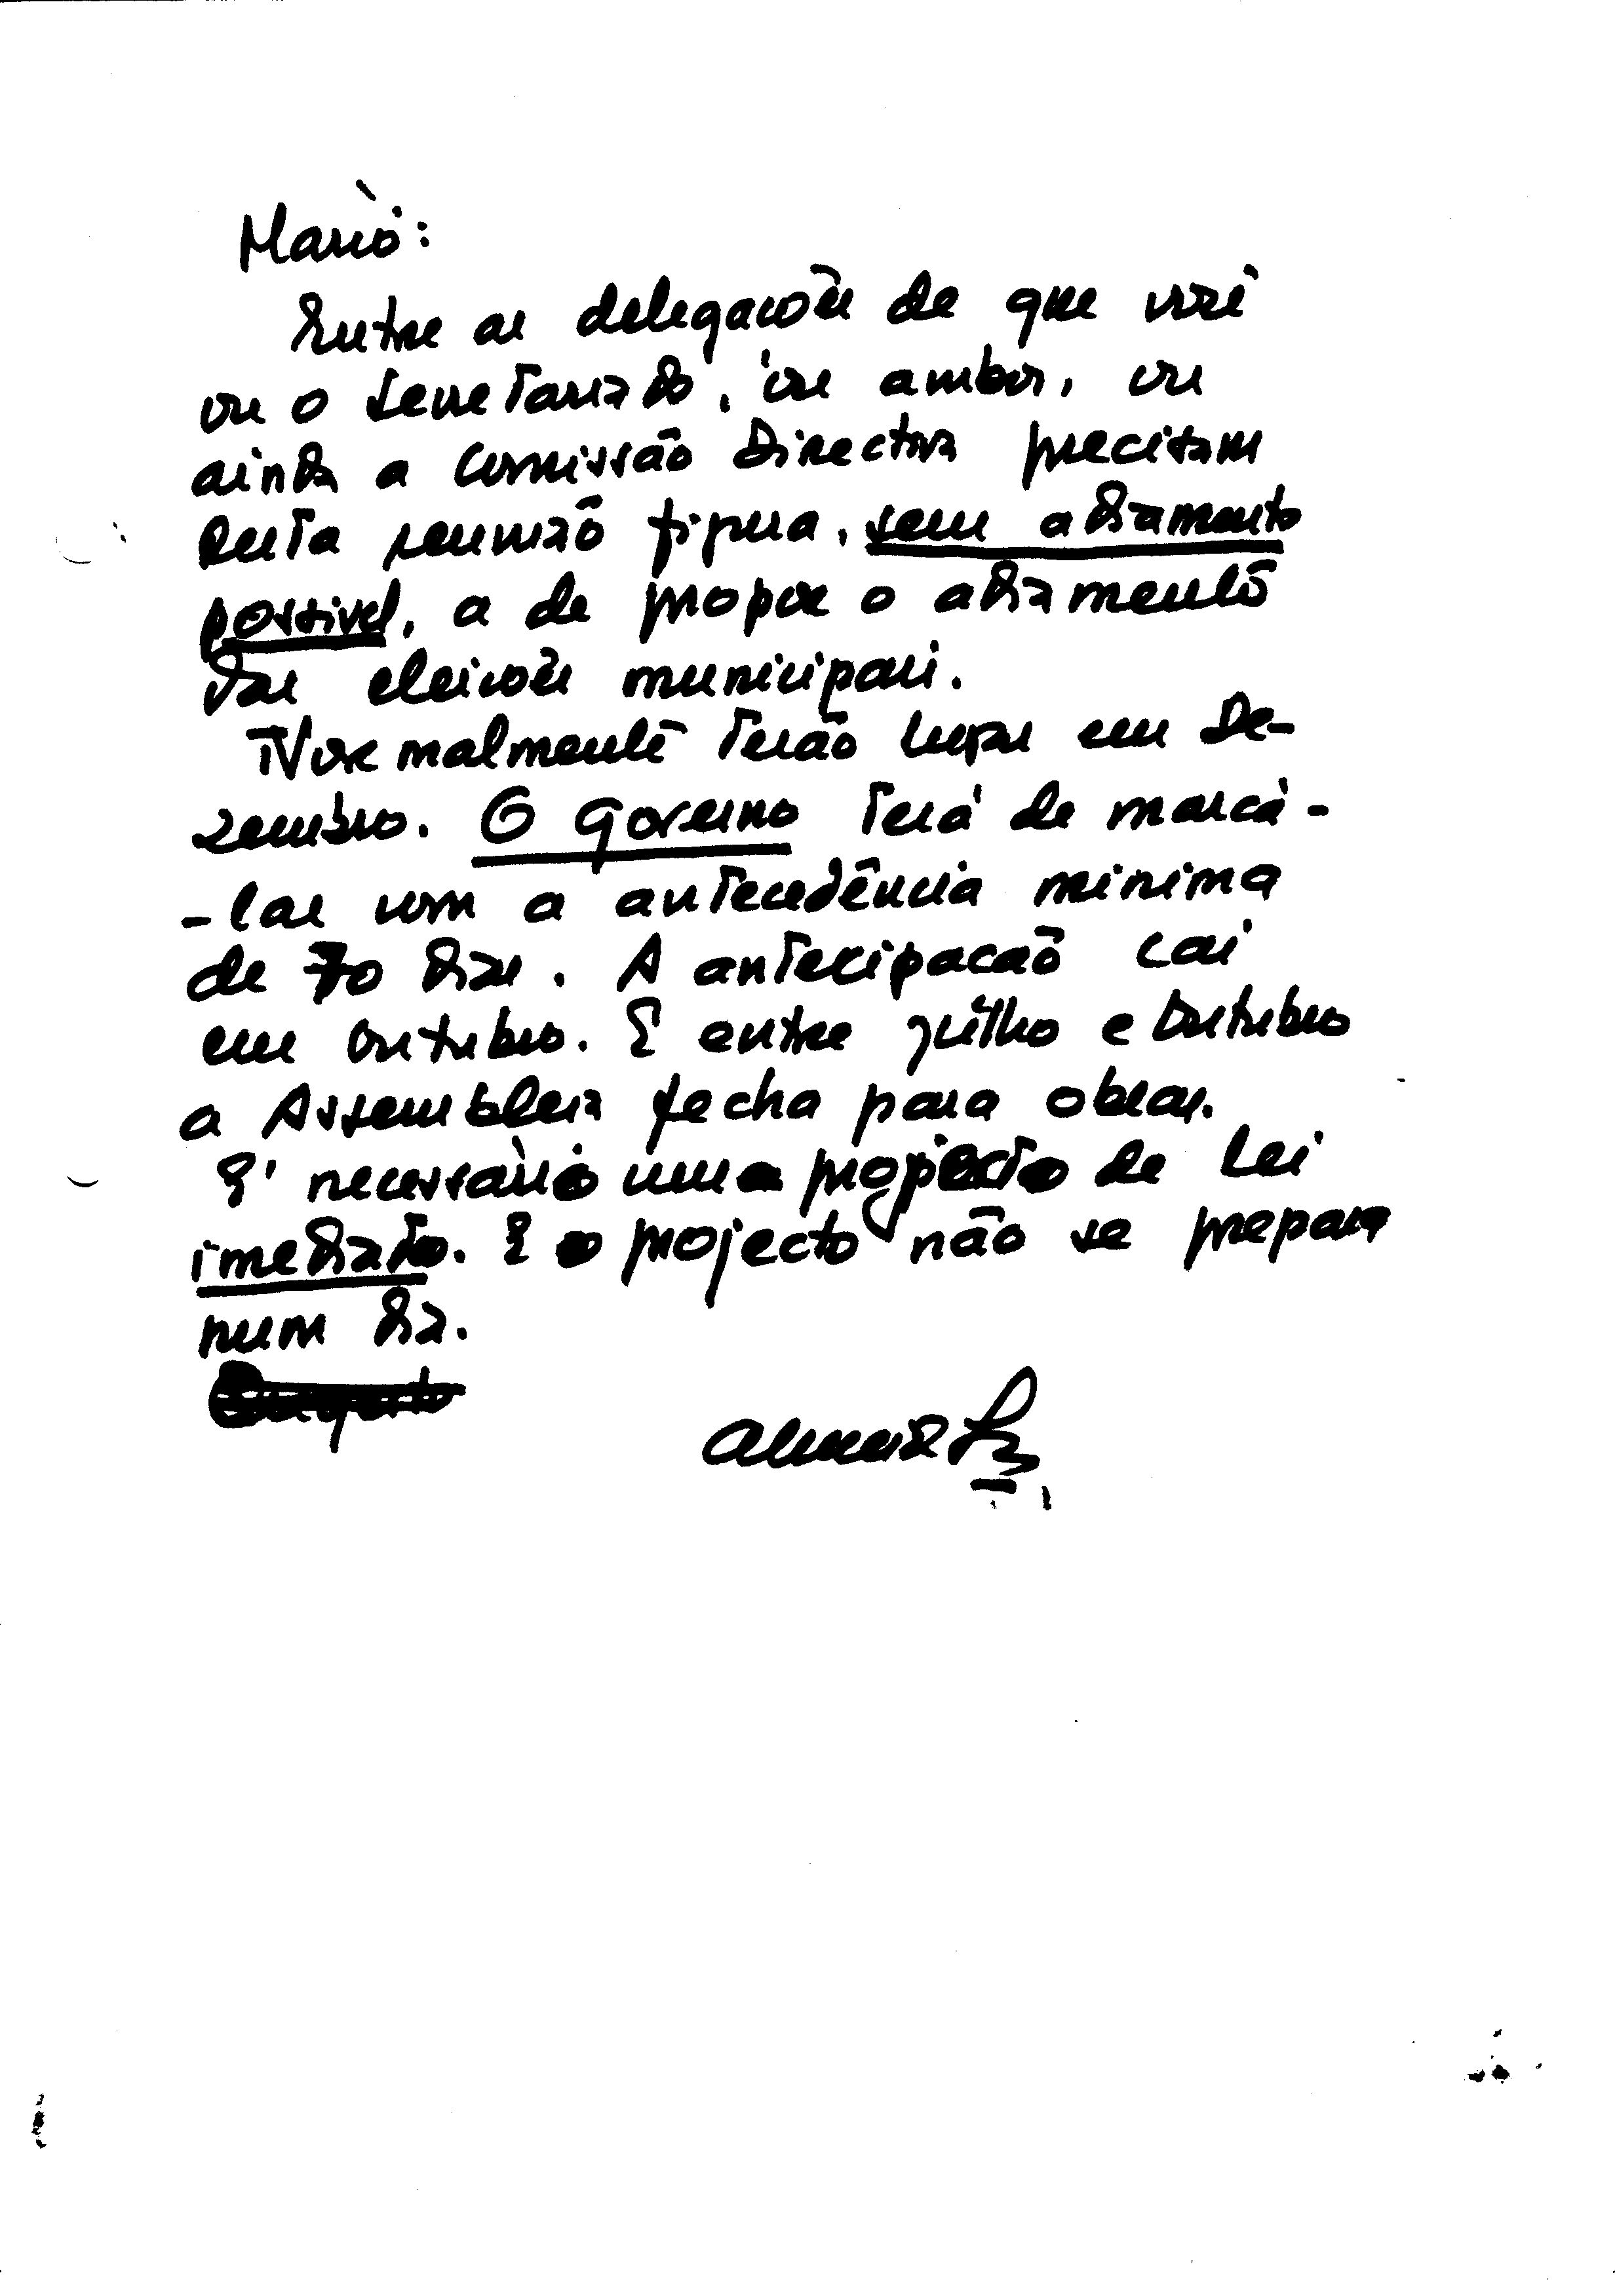 Mário:
Entre as delegações de que você
ou o Secretariado, ou ambos, ou
ainda a Comissão Directiva precisam
nesta reunião figura, sem adiamento
possivel, a de propor o adiamento
das eleições municipais.
Normalmente terão lugar em De-
zembro. O Governo terá de marcá-
-las com a antecedência minima
de 70 dias. A antecipação cai
em Outubro. E entre Julho e Outubro
a Assembleia fecha para obras.
E' necessário um projecto de Lei
imediato. E o projecto não se prepara
num dia.
Almeida Santos